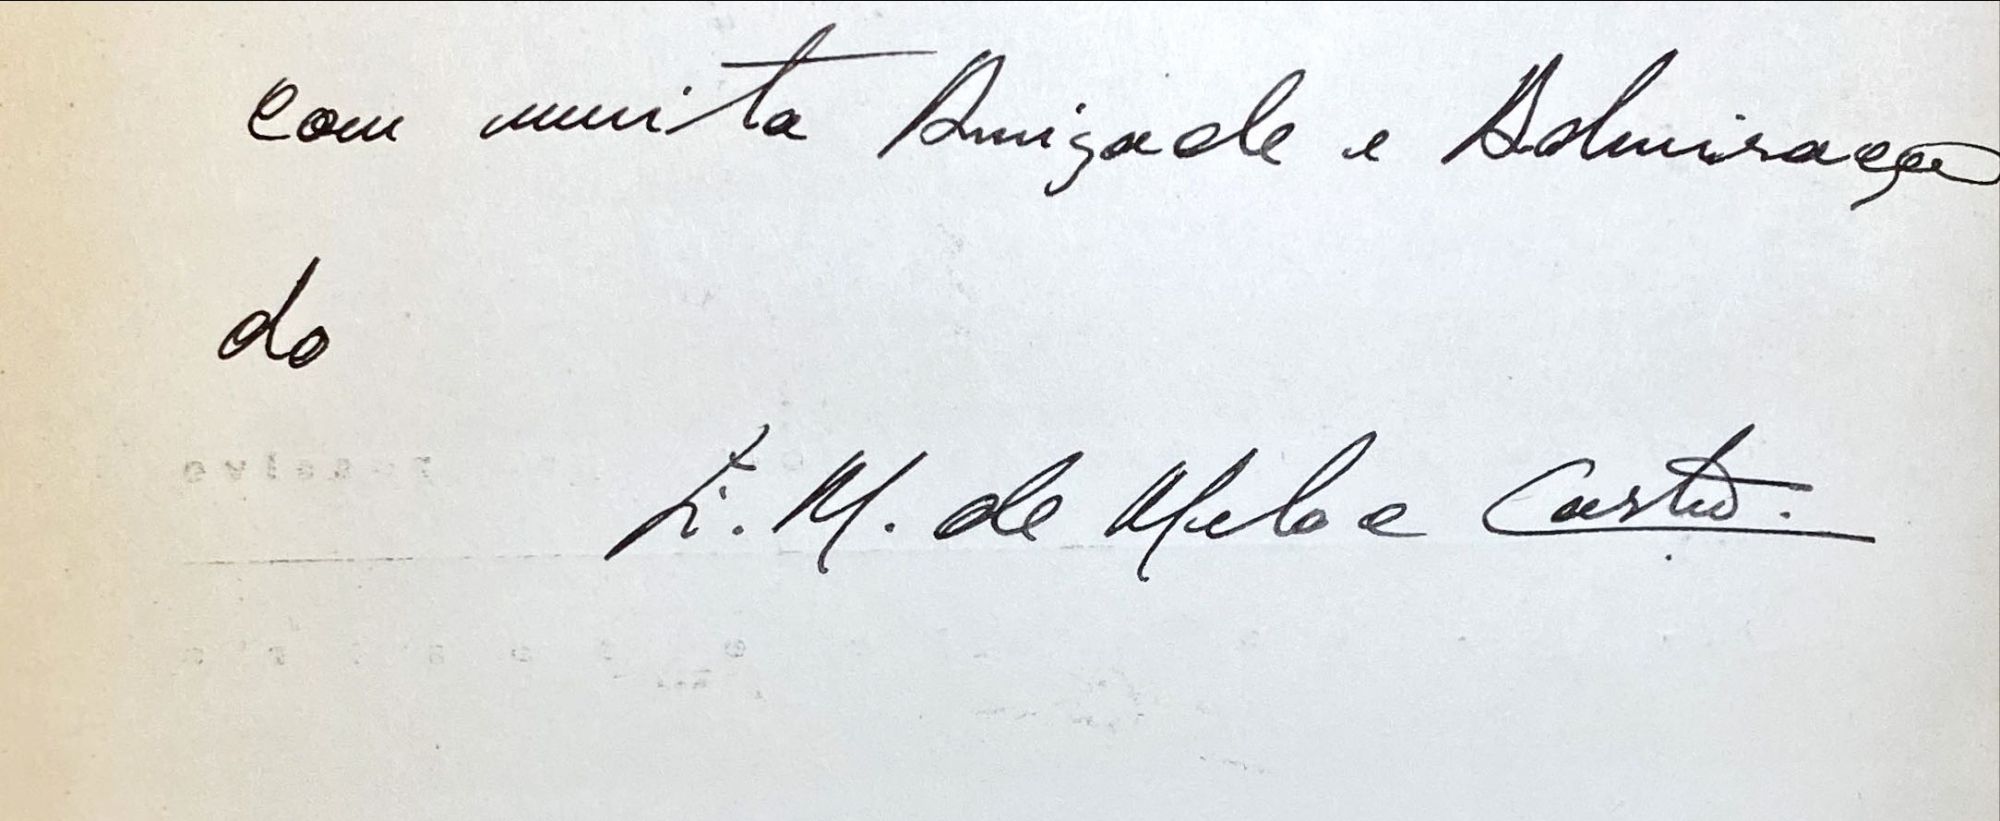 com muita Amizade e Admiração
do
E. M. de Melo e Castro.